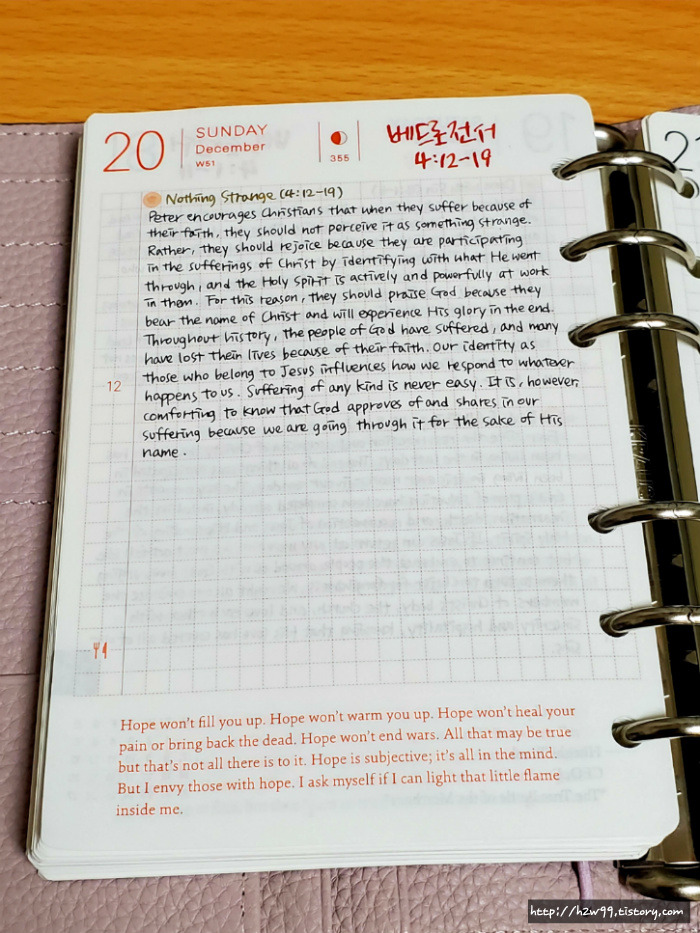 20
SUNDAY
December
W51
355
베드로전서
4:12-19
Nothing Strange (4:12-19)
Peter encourages Christians that when they suffer because of
their faith, they should not perceive it as something strange.
Rather, they should rejoice because they are participating
in the sufferings of Christ by identifying with what He went
through, and the Holy Spirit is actively and powerfully at work
in them. For this reason, they should praise God because they
bear the name of Christ and will experience His glory in the end.
Throughout history, the people of God have suffered, and many
have lost their lives because of their faith. Our identity as
those who belong to Jesus influences how we respond to whatever
happens to us. Suffering of any kind is never easy. It is, however,
comforting to know that God approves of and shares in our
suffering because we are going through it for the sake of His
name.
12
Hope won't fill you up. Hope won't warm you up. Hope won't heal your
pain or bring back the dead. Hope won't end wars. All that may be true
but that's not all there is to it. Hope is subjective; it's all in the mind.
But I envy those with hope. I ask myself if I can light that little flame
inside me.
http://h2w99.tistory.com